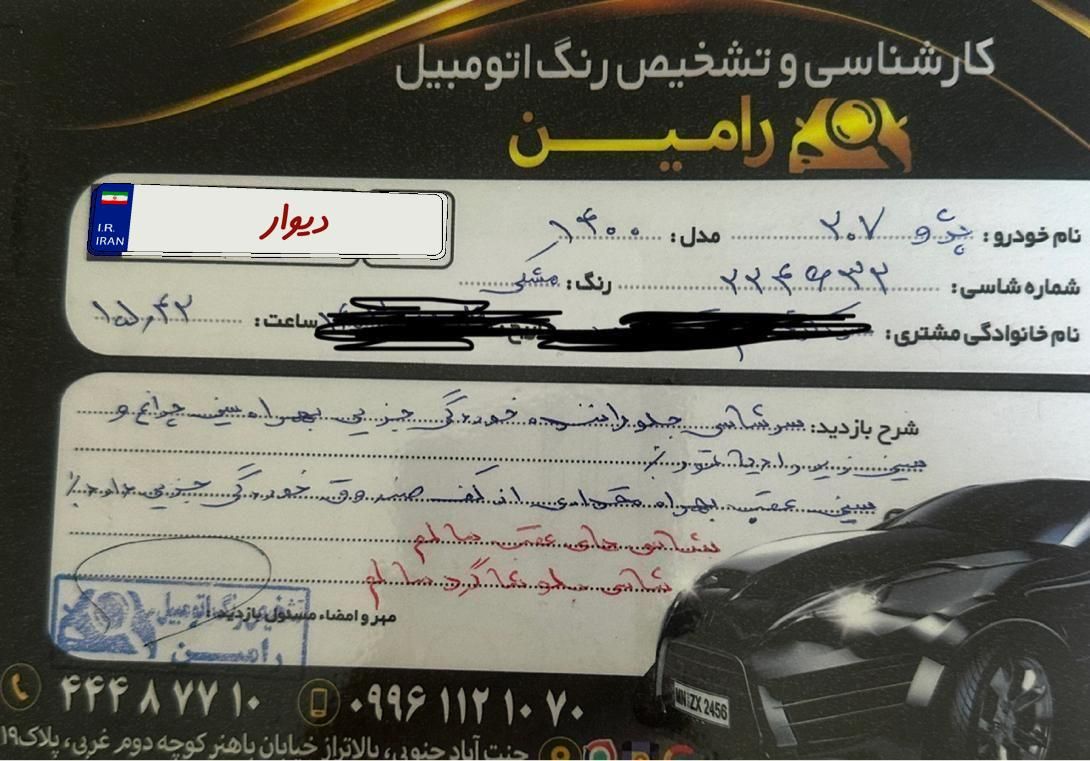 کارشناسی و تشخیص رنگ اتومبیل
رامین
I.R.
IRAN
دیوار
نام خودرو : پژو ۲۰۷ مدل : ۱۴۰۰
شماره شاسی : رنگ : مشکی
نام خانوادگی مشتری : ساعت :
شرح بازدید : سرشاسی جلو راننده خوردگی جزیی بهمراه سینی چراغ و
سینی زیر رادیاتور ٪
سینی عقب بهمراه مقداری از کف صندوق خوردگی جزیی دارد٪
شاسی های عقب سالم
شاسی جلو شاگرد سالم
مهر و امضاء مسئول بازدید :
تشخیص رنگ اتومبیل
رامین
MN ZX 2456
۴۴۴ ۸ ۷۷ ۱۰
۰۹۹۶ ۱۱۲ ۱۰ ۷۰
جنت آباد جنوبی، بالاتر از خیابان باهنر کوچه دوم غربی، پلاک۱۹